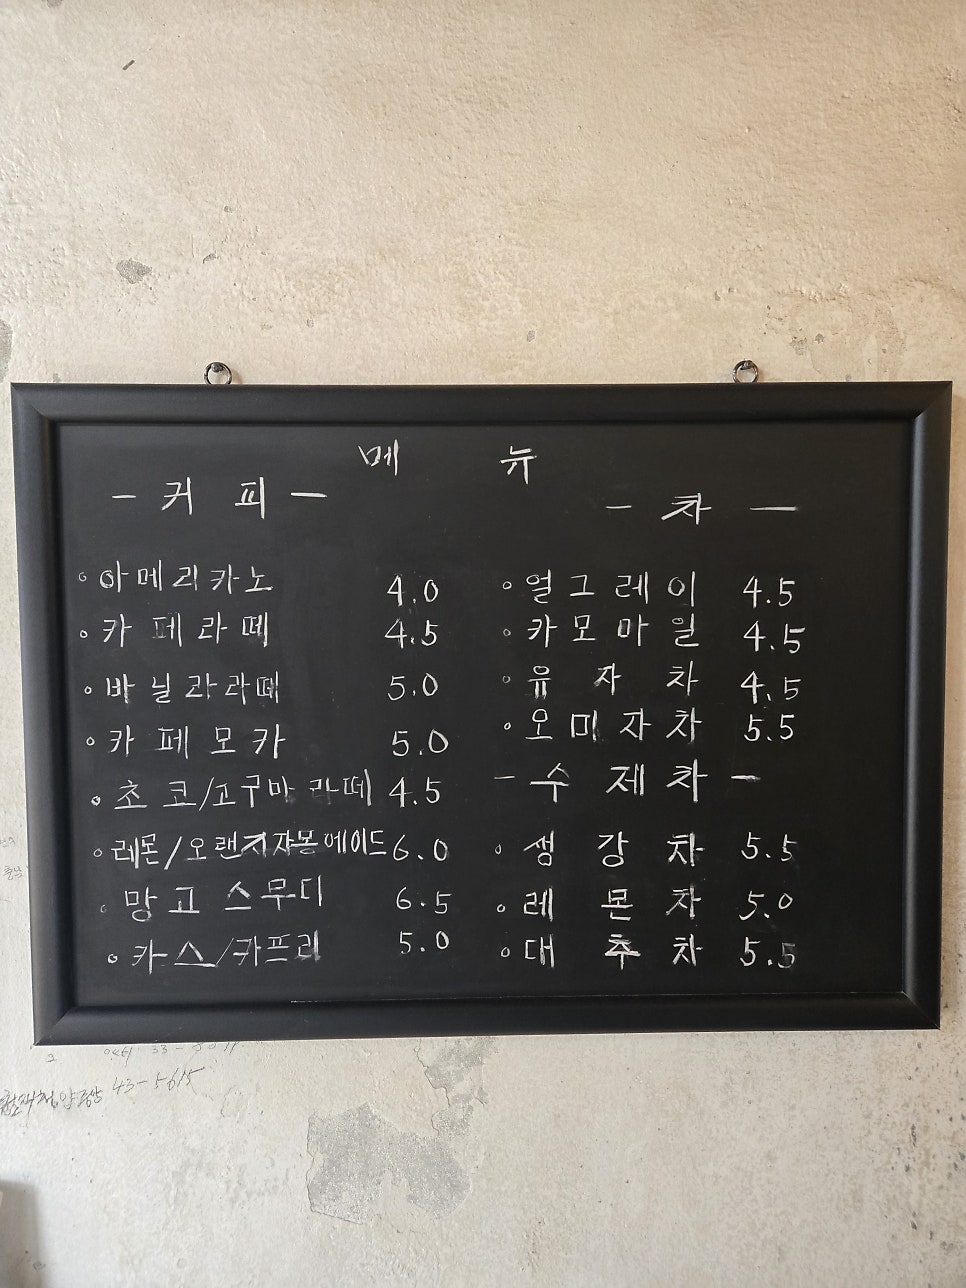 메 뉴
- 커 피 -
◦ 아메리카노 4.0
◦ 카페라떼 4.5
◦ 바닐라라떼 5.0
◦ 카페모카 5.0
◦ 초코/고구마 라떼 4.5
◦ 레몬/오렌지자몽에이드 6.0
◦ 망고 스무디 6.5
◦ 카스/카프리 5.0
- 차 -
◦ 얼그레이 4.5
◦ 카모마일 4.5
◦ 유 자 차 4.5
◦ 오미자차 5.5
- 수 제차 -
◦ 생 강 차 5.5
◦ 레 몬 차 5.0
◦ 대 추 차 5.5
43-5615